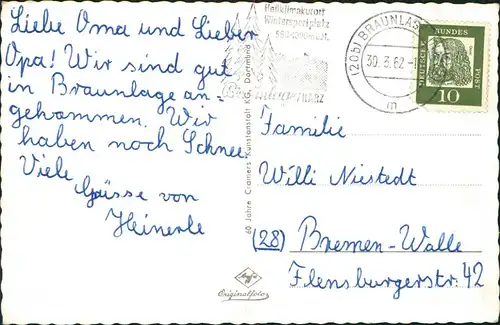 Liebe Oma und Lieber
Opa! Wir sind gut
in Braunlage an-
gekommen. Wir
haben noch Schnee
Viele
Grüsse von
Heinerle
Heilklimakurort
Wintersportplatz
Braunlage/HARZ
(20b) BRAUNLAGE
30.3.62
m
DEUTSCHE
BUNDES
POST
10
60 Jahre Cramers Kunstanstalt KG, Dortmund
Familie
Willi Niestedt
(28) Bremen-Walle
Flensburgerstr. 42
Agfa
Originalfoto